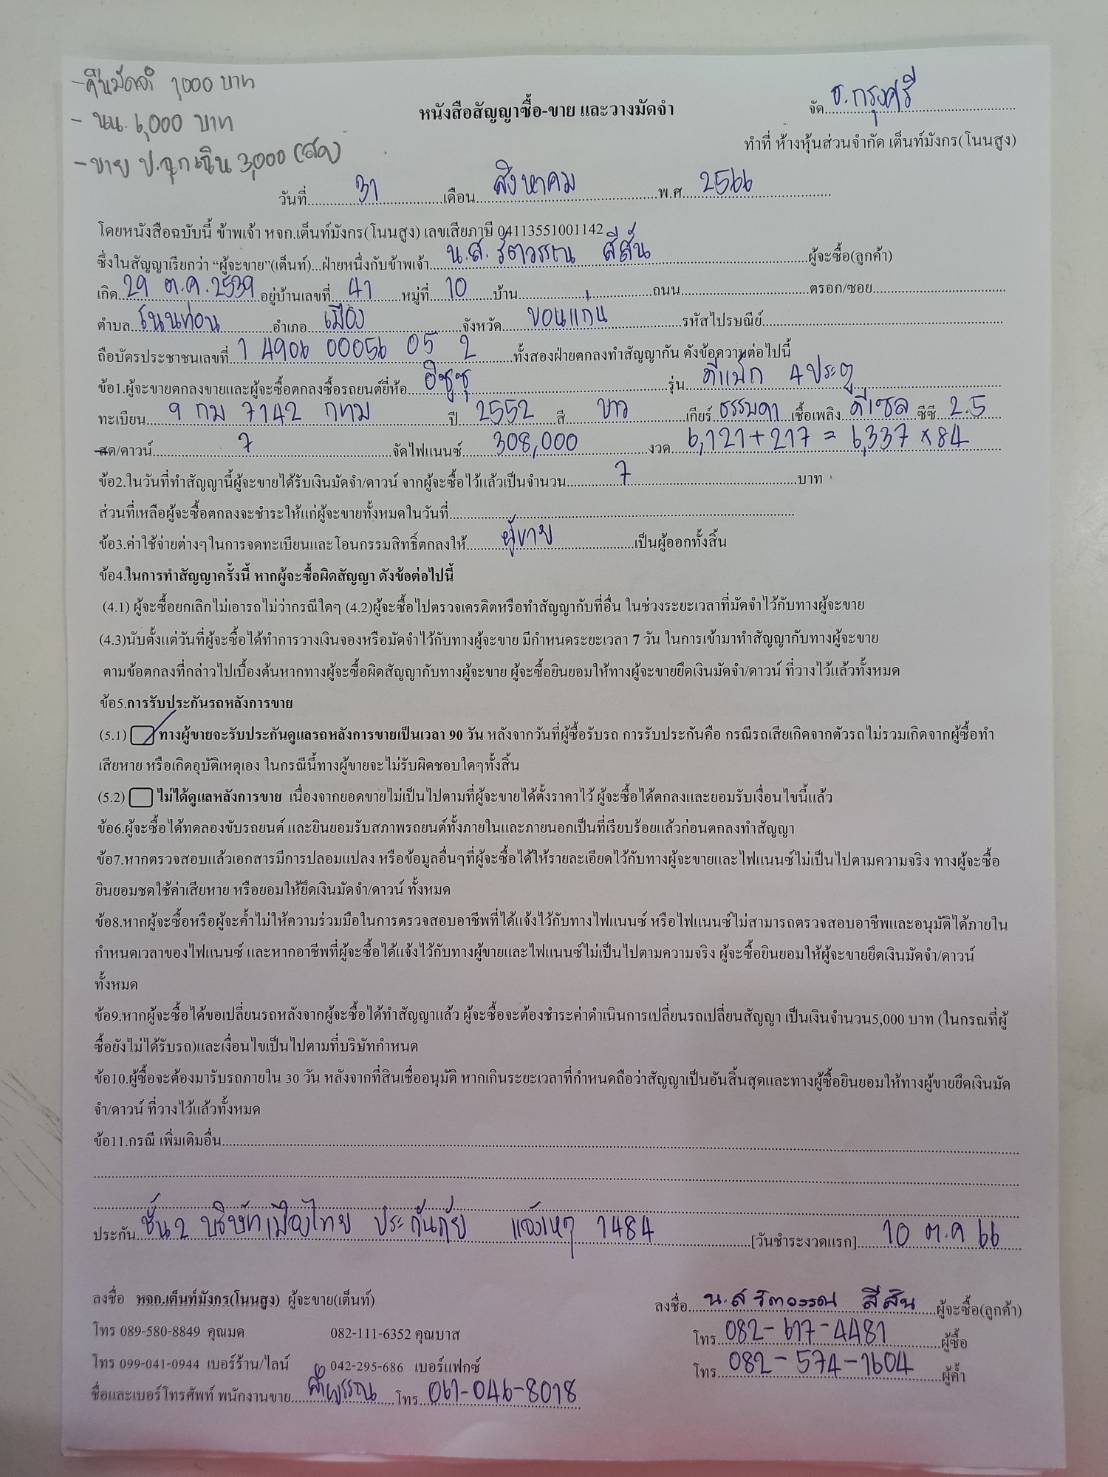 - คืนมัดจำ 1,000 บาท
- นน. 6,000 บาท
- ขาย ป.ฉุกเฉิน 3,000 (สด)
หนังสือสัญญาซื้อ-ขาย และวางมัดจำ
จัด ธ.กรุงศรี
ทำที่ ห้างหุ้นส่วนจำกัด เต็นท์มังกร(โนนสูง)
วันที่ 31 เดือน สิงหาคม พ.ศ. 2566
โดยหนังสือฉบับนี้ ข้าพเจ้า หจก.เต็นท์มังกร(โนนสูง) เลขเสียภาษี 04113551001142
ซึ่งในสัญญาเรียกว่า "ผู้จะขาย"(เต็นท์)...ฝ่ายหนึ่งกับข้าพเจ้า น.ส. รัตวรรณ สีสัน ผู้จะซื้อ(ลูกค้า)
เกิด 29 ต.ค. 2539 อยู่บ้านเลขที่ 41 หมู่ที่ 10 บ้าน ถนน ตรอก/ซอย
ตำบล โนนท่อน อำเภอ เมือง จังหวัด ขอนแก่น รหัสไปรษณีย์
ถือบัตรประชาชนเลขที่ 1 4906 00056 05 2 ทั้งสองฝ่ายตกลงทำสัญญากัน ดังข้อความต่อไปนี้
ข้อ1.ผู้จะขายตกลงขายและผู้จะซื้อตกลงซื้อรถยนต์ยี่ห้อ อีซูซุ รุ่น ดีแม็ก 4 ประตู
ทะเบียน 9 กม 7142 กทม ปี 2552 สี ขาว เกียร์ ธรรมดา เชื้อเพลิง ดีเซล ซีซี 2.5
สด/ดาวน์ 7 จัดไฟแนนซ์ 308,000 งวด 6,121+217 = 6,337 x 84
ข้อ2.ในวันที่ทำสัญญานี้ผู้จะขายได้รับเงินมัดจำ/ดาวน์ จากผู้จะซื้อไว้แล้วเป็นจำนวน 7 บาท
ส่วนที่เหลือผู้จะซื้อตกลงจะชำระให้แก่ผู้จะขายทั้งหมดในวันที่
ข้อ3.ค่าใช้จ่ายต่างๆในการจดทะเบียนและโอนกรรมสิทธิ์ตกลงให้ ผู้ขาย เป็นผู้ออกทั้งสิ้น
ข้อ4.ในการทำสัญญาครั้งนี้ หากผู้จะซื้อผิดสัญญา ดังข้อต่อไปนี้
(4.1) ผู้จะซื้อยกเลิกไม่เอารถไม่ว่ากรณีใดๆ (4.2)ผู้จะซื้อไปตรวจเครดิตหรือทำสัญญากับที่อื่น ในช่วงระยะเวลาที่มัดจำไว้กับทางผู้จะขาย
(4.3)นับตั้งแต่วันที่ผู้จะซื้อได้ทำการวางเงินจองหรือมัดจำไว้กับทางผู้จะขาย มีกำหนดระยะเวลา 7 วัน ในการเข้ามาทำสัญญากับทางผู้จะขาย
ตามข้อตกลงที่กล่าวไปเบื้องต้นหากทางผู้จะซื้อผิดสัญญากับทางผู้จะขาย ผู้จะซื้อยินยอมให้ทางผู้จะขายยึดเงินมัดจำ/ดาวน์ ที่วางไว้แล้วทั้งหมด
ข้อ5.การรับประกันรถหลังการขาย
(5.1) ทางผู้ขายจะรับประกันดูแลรถหลังการขายเป็นเวลา 90 วัน หลังจากวันที่ผู้ซื้อรับรถ การรับประกันคือ กรณีรถเสียเกิดจากตัวรถไม่รวมเกิดจากผู้ซื้อทำ
เสียหาย หรือเกิดอุบัติเหตุเอง ในกรณีนี้ทางผู้ขายจะไม่รับผิดชอบใดๆทั้งสิ้น
(5.2) ไม่ได้ดูแลหลังการขาย เนื่องจากยอดขายไม่เป็นไปตามที่ผู้จะขายได้ตั้งราคาไว้ ผู้จะซื้อได้ตกลงและยอมรับเงื่อนไขนี้แล้ว
ข้อ6.ผู้จะซื้อได้ทดลองขับรถยนต์ และยินยอมรับสภาพรถยนต์ทั้งภายในและภายนอกเป็นที่เรียบร้อยแล้วก่อนตกลงทำสัญญา
ข้อ7.หากตรวจสอบแล้วเอกสารมีการปลอมแปลง หรือข้อมูลอื่นๆที่ผู้จะซื้อได้ให้รายละเอียดไว้กับทางผู้จะขายและไฟแนนซ์ไม่เป็นไปตามความจริง ทางผู้จะซื้อ
ยินยอมชดใช้ค่าเสียหาย หรือยอมให้ยึดเงินมัดจำ/ดาวน์ ทั้งหมด
ข้อ8.หากผู้จะซื้อหรือผู้จะค้ำไม่ให้ความร่วมมือในการตรวจสอบอาชีพที่ได้แจ้งไว้กับทางไฟแนนซ์ หรือไฟแนนซ์ไม่สามารถตรวจสอบอาชีพและอนุมัติได้ภายใน
กำหนดเวลาของไฟแนนซ์ และหากอาชีพที่ผู้จะซื้อได้แจ้งไว้กับทางผู้ขายและไฟแนนซ์ไม่เป็นไปตามความจริง ผู้จะซื้อยินยอมให้ผู้จะขายยึดเงินมัดจำ/ดาวน์
ทั้งหมด
ข้อ9.หากผู้จะซื้อได้ขอเปลี่ยนรถหลังจากผู้จะซื้อได้ทำสัญญาแล้ว ผู้จะซื้อจะต้องชำระค่าดำเนินการเปลี่ยนรถเปลี่ยนสัญญา เป็นเงินจำนวน5,000 บาท (ในกรณที่ผู้
ซื้อยังไม่ได้รับรถ)และเงื่อนไขเป็นไปตามที่บริษัทกำหนด
ข้อ10.ผู้ซื้อจะต้องมารับรถภายใน 30 วัน หลังจากที่สินเชื่ออนุมัติ หากเกินระยะเวลาที่กำหนดถือว่าสัญญาเป็นอันสิ้นสุดและทางผู้ซื้อยินยอมให้ทางผู้ขายยึดเงินมัด
จำ/ดาวน์ ที่วางไว้แล้วทั้งหมด
ข้อ11.กรณี เพิ่มเติมอื่น
ประกัน ชั้น 2 บริษัทเมืองไทย ประกันภัย แจ้งเหตุ 1484 [วันชำระงวดแรก] 10 ต.ค 66
ลงชื่อ หจก.เต็นท์มังกร(โนนสูง) ผู้จะขาย(เต็นท์)
ลงชื่อ น.ส รัตวรรณ สีสัน ผู้จะซื้อ(ลูกค้า)
โทร 089-580-8849 คุณมด 082-111-6352 คุณบาส
โทร 082-617-4481 ผู้ซื้อ
โทร 099-041-0944 เบอร์ร้าน/ไลน์ 042-295-686 เบอร์แฟกซ์
โทร 082-574-1604 ผู้ค้ำ
ชื่อและเบอร์โทรศัพท์ พนักงานขาย โทร 061-046-8018